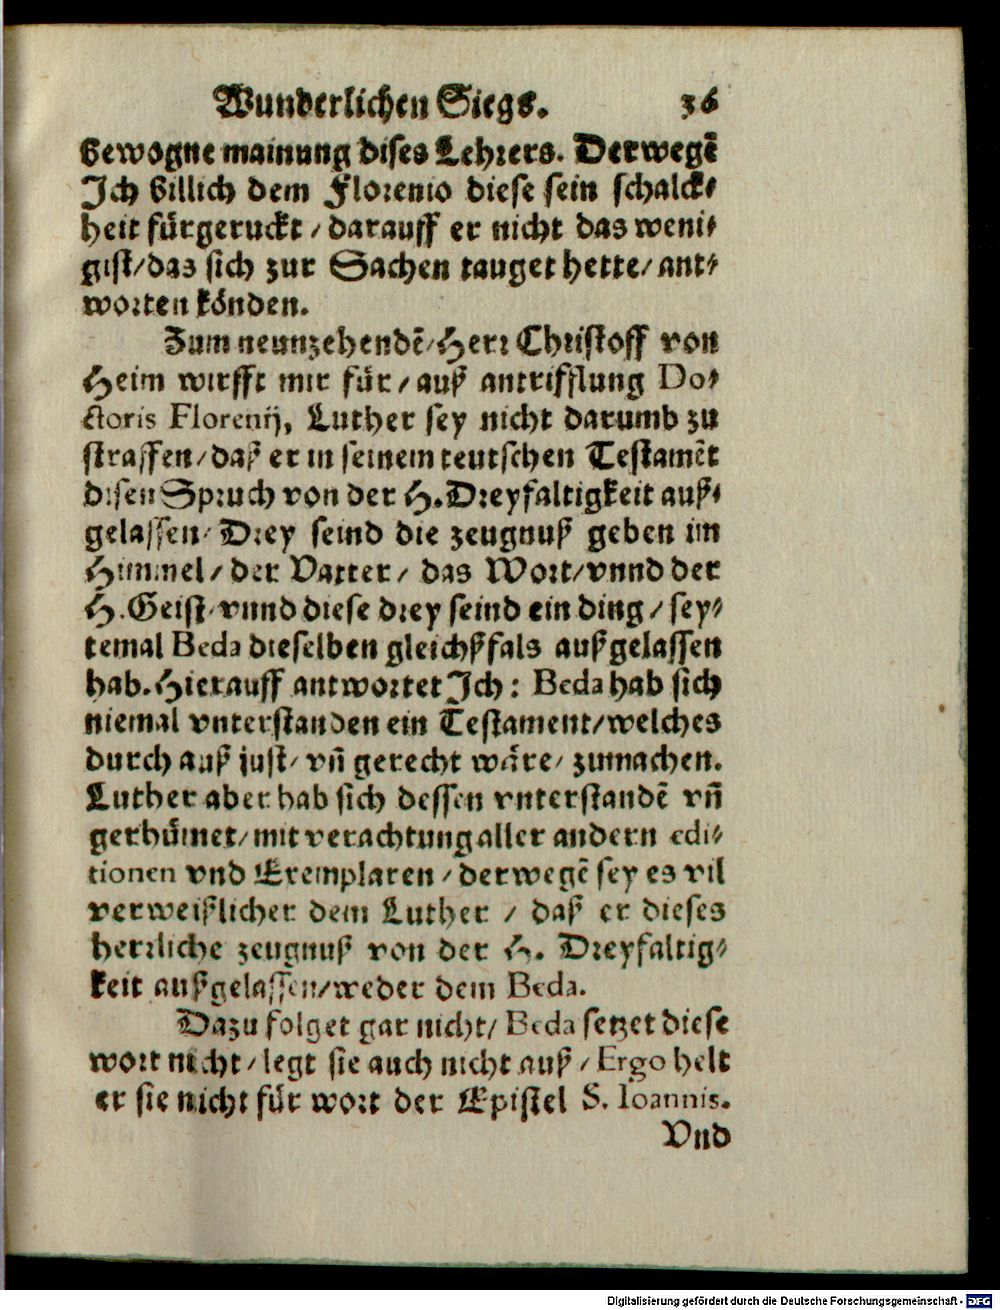 Wunderlichen Siegs. 36
bewogne mainung dises Lehrers. Derwegē
Ich billich dem Florenio diese sein schalck⸗
heit fürgeruckt / darauff er nicht das weni⸗
gist/das sich zur Sachen tauget hette/ ant⸗
worten könden.
Zum neunzehendē/Herr Christoff von
Heim wirfft mir für / auß antrifflung Do⸗
ctoris Florenij, Luther sey nicht darumb zu
straffen/daß er in seinem teutschen Testamēt
disen Spruch von der H. Dreyfaltigkeit auß⸗
gelassen/ Drey seind die zeugnuß geben im
Himmel / der Vatter / das Wort/vnnd der
H. Geist/vnnd diese drey seind ein ding / sey⸗
temal Beda dieselben gleichßfals außgelassen
hab. Hierauff antwortet Ich: Beda hab sich
niemal vnterstanden ein Testament/welches
durch auß just/ vñ gerecht wäre/ zumachen.
Luther aber hab sich dessen vnterstandē vñ
gerhümet/mit verachtung aller andern edi⸗
tionen vnd Exemplaren / derwegē sey es vil
verweißlicher dem Luther / daß er dieses
herrliche zeugnuß von der H. Dreyfaltig⸗
keit außgelassen/weder dem Beda.
Dazu folget gar nicht/ Beda setzet diese
wort nicht / legt sie auch nicht auß / Ergo helt
er sie nicht für wort der Epistel S. Ioannis.
Vnd
Digitalisierung gefördert durch die Deutsche Forschungsgemeinschaft - DFG